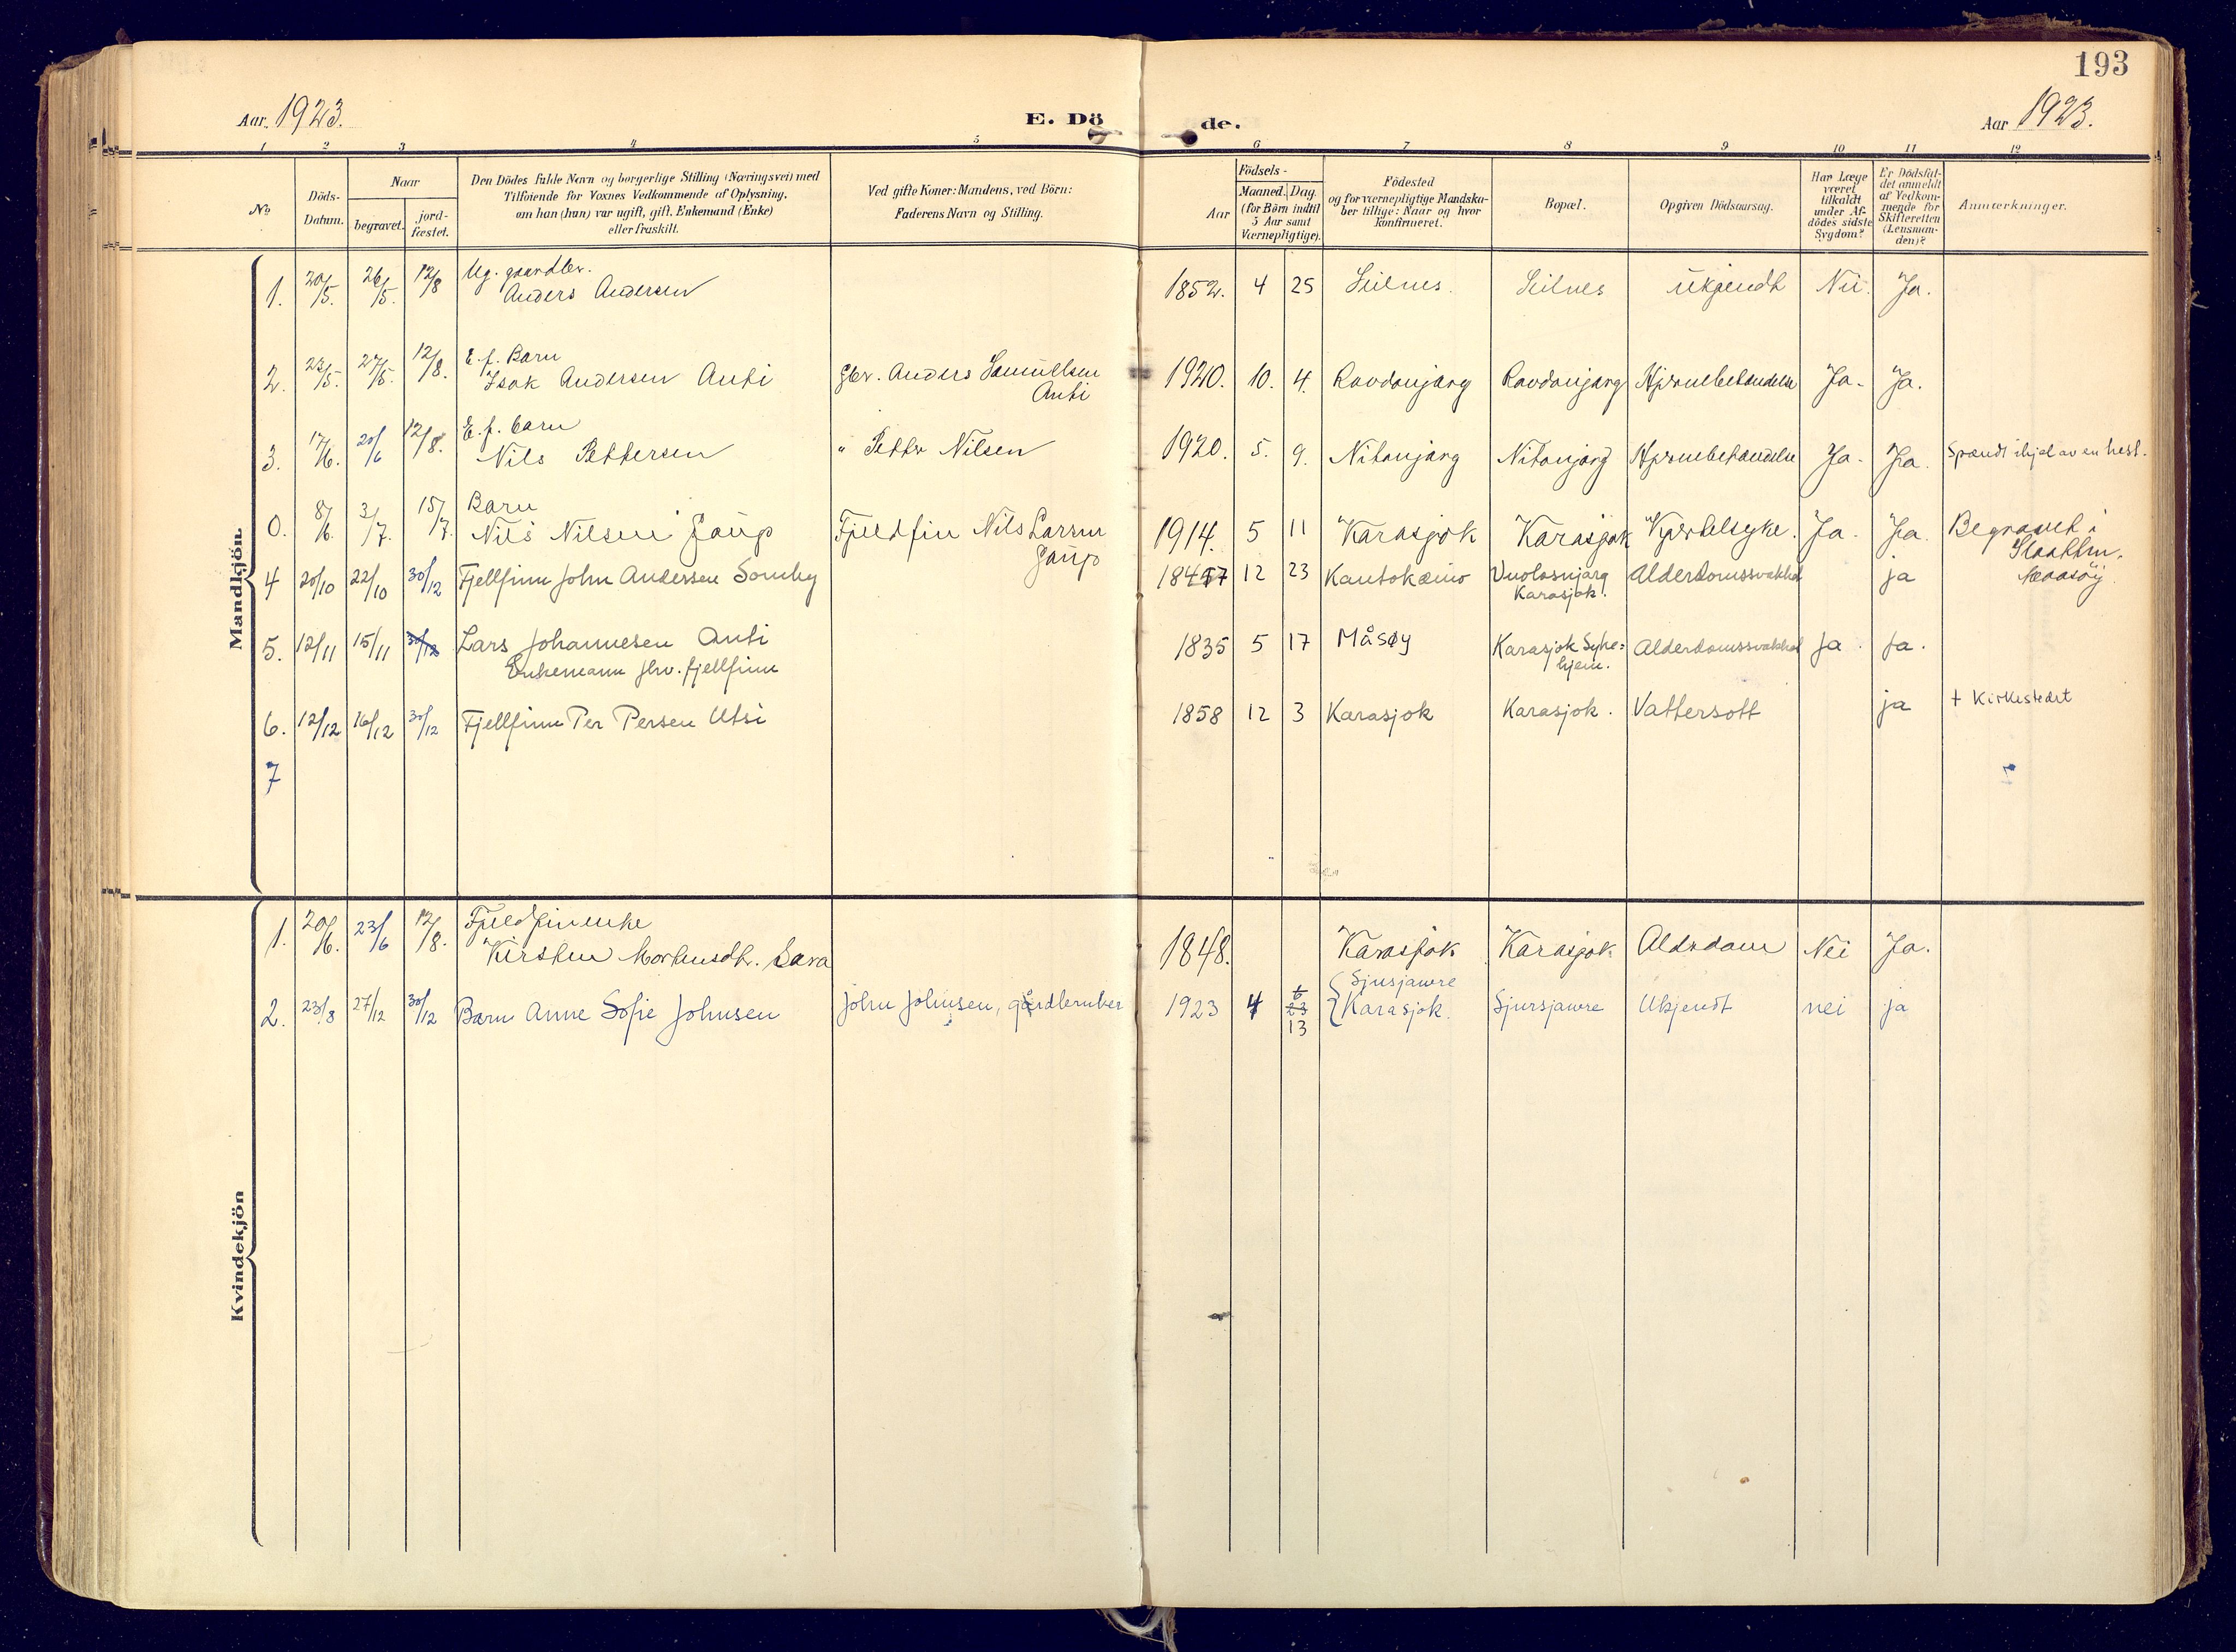 193
Aar 1923.
E. Dö de.
Aar 1923.
1 2 3 4 5 6 7 8 9 10 11 12
No
Döds-Datum.
Naar
begravet.
jord-fæstet.
Den Dödes fulde Navn og borgerlige Stilling (Næringsvei) med
Tilföiende for Voxnes Vedkommende af Oplysning,
om han (hun) var ugift, gift, Enkemand (Enke)
eller fraskilt.
Ved gifte Koner: Mandens, ved Börn:
Faderens Navn og Stilling.
Födsels-
Aar
Maaned.
Dag.
(for Börn indtil
5 Aar samt
Værnepligtige).
Födested
og for værnepligtige Mandska-
ber tillige: Naar og hvor
Konfirmeret.
Bopæl.
Opgiven Dödsaarsag.
Har Læge
været
tilkaldt
under Af-
dödes sidste
Sygdom?
Er Dödsfal-
det anmeldt
af Vedkom-
mende for
Skifteretten
(Lensman-
den)?
Anmærkninger.
Mandkjön.
1. 20/5. 26/5. 12/8 Ug. gaardbr.
Anders Andersen 1852. 4 25 Seilnes. Seilnes ukjendt Nei. Ja.
2. 22/5. 27/5. 12/8. E. f. Barn
Isak Andersen Anti Gbr. Anders Samuelsen
Anti 1920. 10. 4. Ravdonjarg Ravdonjarg Hjernebetændelse Ja. Ja.
3. 17/6. 20/6 12/8. E. f. barn
Nils Pettersen " Petter Nilsen 1920. 5. 9. Nitonjarg Nitonjarg Hjernebetændelse Ja. Ja. Spændt ihjel av en hest.
0. 8/6. 3/7. 15/7. Barn
Nils Nilsen Gaup Fjeldfin Nils Larsen
Gaup 1914. 5 11 Karasjok Karasjok Kjertelsyke. Ja. Ja. Begravet i
Maasöy.
4 20/10 22/10 30/12 Fjellfinn John Andersen Somby 1847 12 23 Kautokæino Vuolosnjarg
Karasjok. Alderdomssvakhet ja
5. 12/11 15/11 30/12 Lars Johannesen Anti
Enkemann fhv. fjellfinn 1835 5 17 Måsøy Karasjok Syke-
hjem. Alderdomssvakhet Ja. Ja.
6. 12/12 16/12 30/12 Fjellfinn Per Persen Utsi 1858 12 3 Karasjok Karasjok. Vattersott ja + Kirkestedet
7
Kvindekjön
1. 20/6. 23/6 12/8. Fjeldfinenke
Kirsten Mortensdtr. Sara 1848. Karasjok Karasjok Alderdom Nei Ja.
2. 23/8 27/12 30/12 Barn Anne Sofie Johnsen John Johnsen, gårdbruker 1923 4 23 13 Sjusjawre
Karasjok. Sjursjawre Ukjendt nei ja